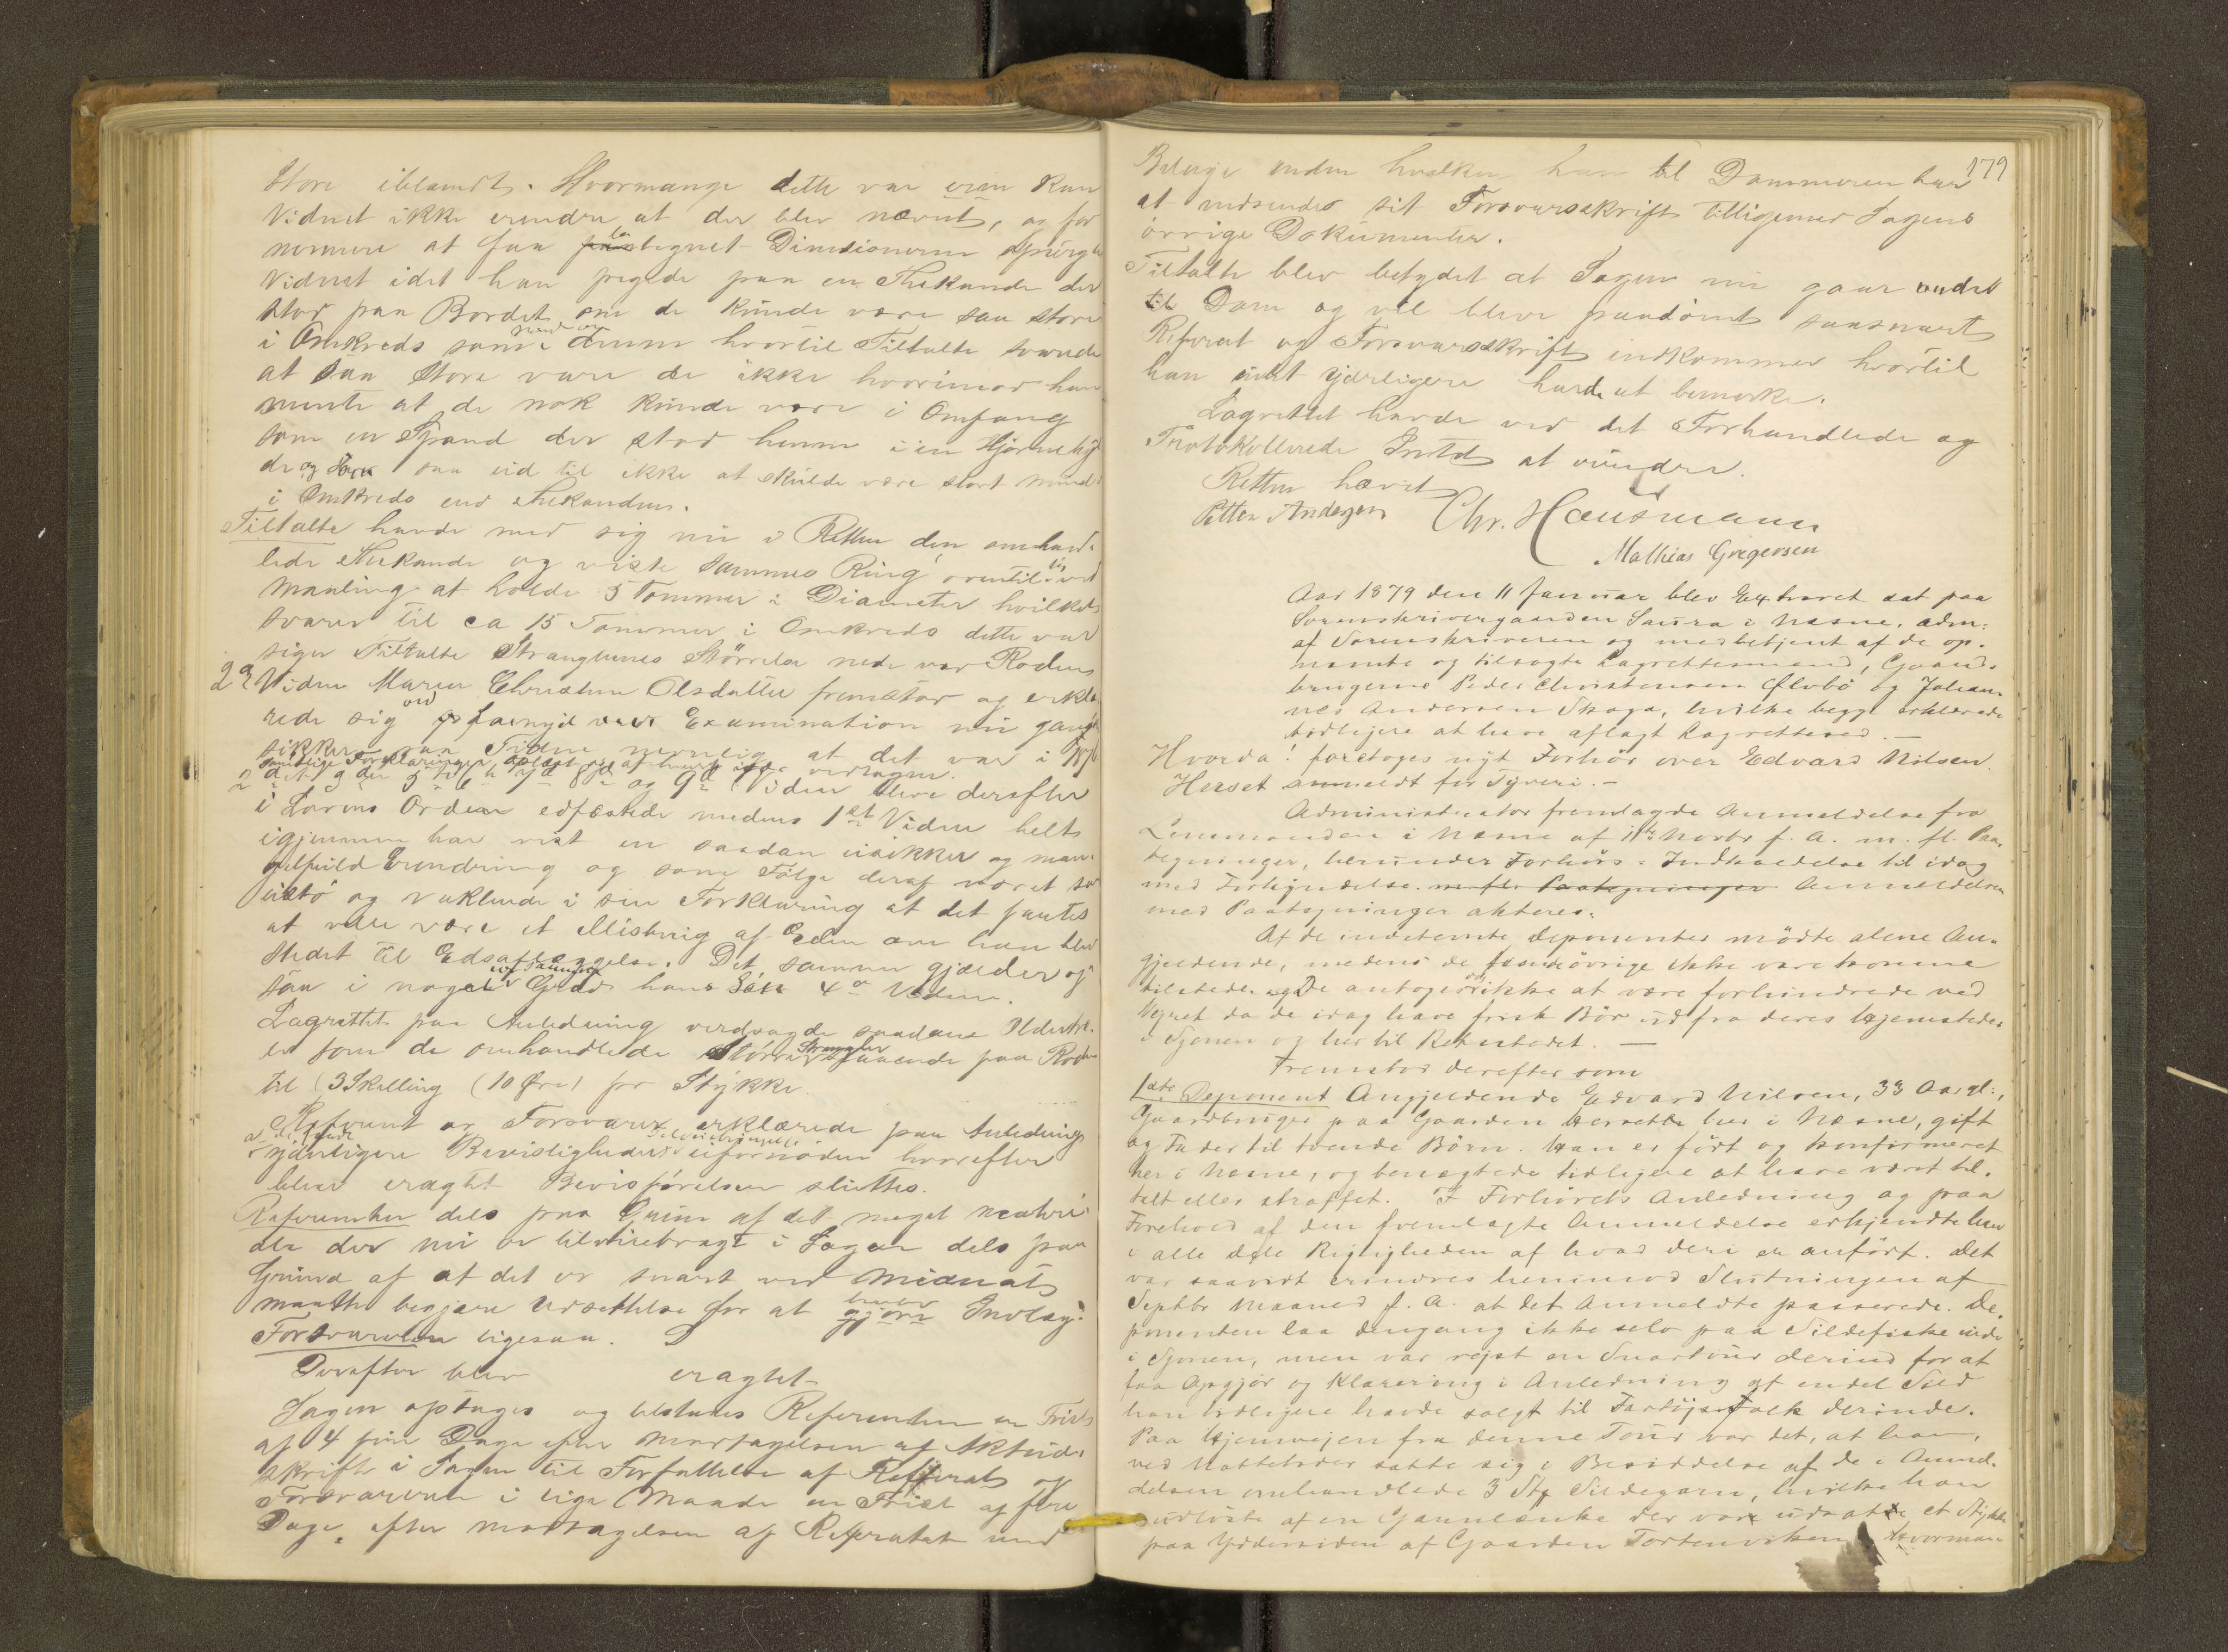 store iblandt. Hvormange dette var end kan
Vidnet ikke erindre at der blev nævnt, og for
nermere at faa betegnet Dimsionerne spurgte
Vidnet idet han pegede paa en Thekande der
stod paa Bordet om de kunde være saa store
i Omkreds som denne hvortil Tiltalte svarede
at saa store vare de ikke hvorimod han
mente at de nok kunde være i Omfang
som en Spand der stod henne i en Hjørne
saa vid til ikke at skulde være stort mindre
i Omkreds end Thekanden.
Tiltalte havde med sig nu i Retten den omhand-
lede Thekande og viste sammes Ring oventil ved
Maaling at holde 5 Tommer i Diameter hvilket
svarer til ca 15 Tommer i Omkreds dette var
siger Tiltalte Stranglernes Størrelse nede ved Roden
2det Vidne Maren Christine Olsdatter fremstod og erklæ-
rede sig ved fornyet Examination nu ganske
sikker paa Tiden nemlig at det var i
samtlige Forklaringer oplæst
2det 3die 5te 6te 7de 8de og 9de Vidne bleve derefter
i Lovens Orden edfæstede medens 1ste Vidne helt
igjennem har vist en saadan usikker og man-
gelfuld Erindring og som Følge deraf været saa
ustø og vaklende i sin Forklaring at det fandtes
at ville være et Misbrug af Eden om han blev
stedet til Edsaflæggelse. Det samme gjælder og
saa i nogen Grad hans Søn 4de Vidne.
Lagrettet paa Anledning verdsagde saadane
er som de omhandlede større Strangler staaende paa Roden
til 3 Skilling (10 Øre) pr Stykke.
Referent og Forsvarer erklærede paa Anledning
yderligere Bevisligheders Tilveiebringelse ufornøden hvorefter
blev eragtet Bevisførelsen sluttes.
Referenten dels paa Grund af det meget materi-
ale der nu er tilveiebragt i Sagen dels paa
Grund af at det er snart ved Midnat
maatte begjære Udsættelse for at gjøre Indlæg.
Forsvareren ligesaa.
Derefter blev eragtet
Sagen optages og tilstaaes Referenten en Frist
af 4 fire Dage efter Modtagelsen af Aktud-
skrift i Sagen til Forfattelse af Referat og
Forsvareren i lige Maade en Frist af fire
Dage efter Modtagelsen af Referatet med
179
Bilage inden hvilken han til Dommeren har
at nedsende sit Forsvarsskrift tilligemed Sagens
øvrige Dokumenter.
Tiltalte blev betydet at Sagen nu gaar ind
til Dom og vil blive paadømt saasnart
Referat og Forsvarsskrift indkommer hvortil
han intet yderligere havde at bemærke.
Lagrettet havde ved det Forhandlede og
Protokollerede Intet at erindre.
Retten hævet
Petter Andersen Chr. Hausmann
Mathias Gregersen
Aar 1879 den 11 Januar blev Ex.traret sat paa
Sorenskrivergaarden Saura i Næsne, adm:
af Sorenskriveren og medbetjent af de op-
nævnte og tilsagte Lagrettesmænd, Gaard-
brugerne Peder Christensen Ølvbø og Johan-
nes Andersen Skoga, hvilke begge erklærede
tidligere at have aflagt Lagretteseed.—
Hvorda! foretoges nyt Forhør over Edvard Nilsen
Herset anmeldt for Tyveri.—
Administrator fremlagde Anmeldelse fra
Lensmanden i Næsne af 11te Novbr f. A. m. fl. Paa-
tegninger, herunder Forhørs-Indkaldelse til idag
med Forkyndelse. m. fl. Paategninger Anmeldelsen
med Paategninger akteres.
Af de indstevnte Deponenter mødte alene An-
gjeldende, medens de øvrige ikke vare komne
tilstede. og De antoges ikke at være forhindrede ved
Veiret da de idag have frisk Bør ud fra deres Hjemsteder
i Sjonen og her til Retsstedet.—
Fremstod derefter som
1ste Deponent Angjeldende Edvard Nilsen, 33 Aar gl:,
Gaardbruger paa Gaarden Herset her i Næsne, gift
og Fader til tvende Børn. Han er født og konfirmeret
her i Næsne, og benægtede tidligere at have været til-
talt eller straffet. I Forhørets Anledning og paa
Forehold af den fremlagte Anmeldelse erkjendte han
i alle Dele Rigtigheden af hvad deri er anført. Det
var saavidt erindres henimod Slutningen af
Septbr Maaned f. A. at det Anmeldte passerede. De-
ponenten laa dengang ikke selv paa Sildefiske inde
i Sjonen, men var rejst en Snartour derind for at
faa Opgjør og Klarering i Anledning af endel Sild
han tidligere havde solgt til Fartøjsfolk derinde.
Paa Hjemvejen fra denne Tour var det, at han,
ved Nattetider satte sig i Besiddelse af de i Anmel-
delsen omhandlede 3 Stk Sildegarn, hvilke han
udløste af en Garnlænke der var udsatte, et Stykke
paa Yddersiden af Gaarden Tortenviken. Hvorman-